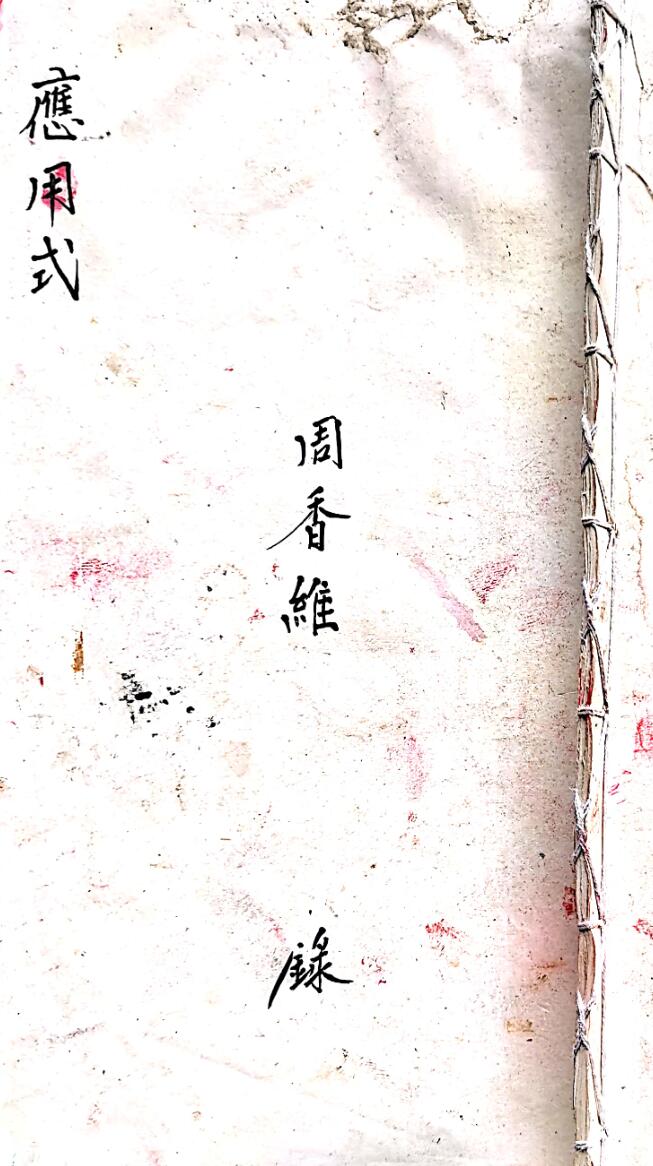 應用式
周香維
錄